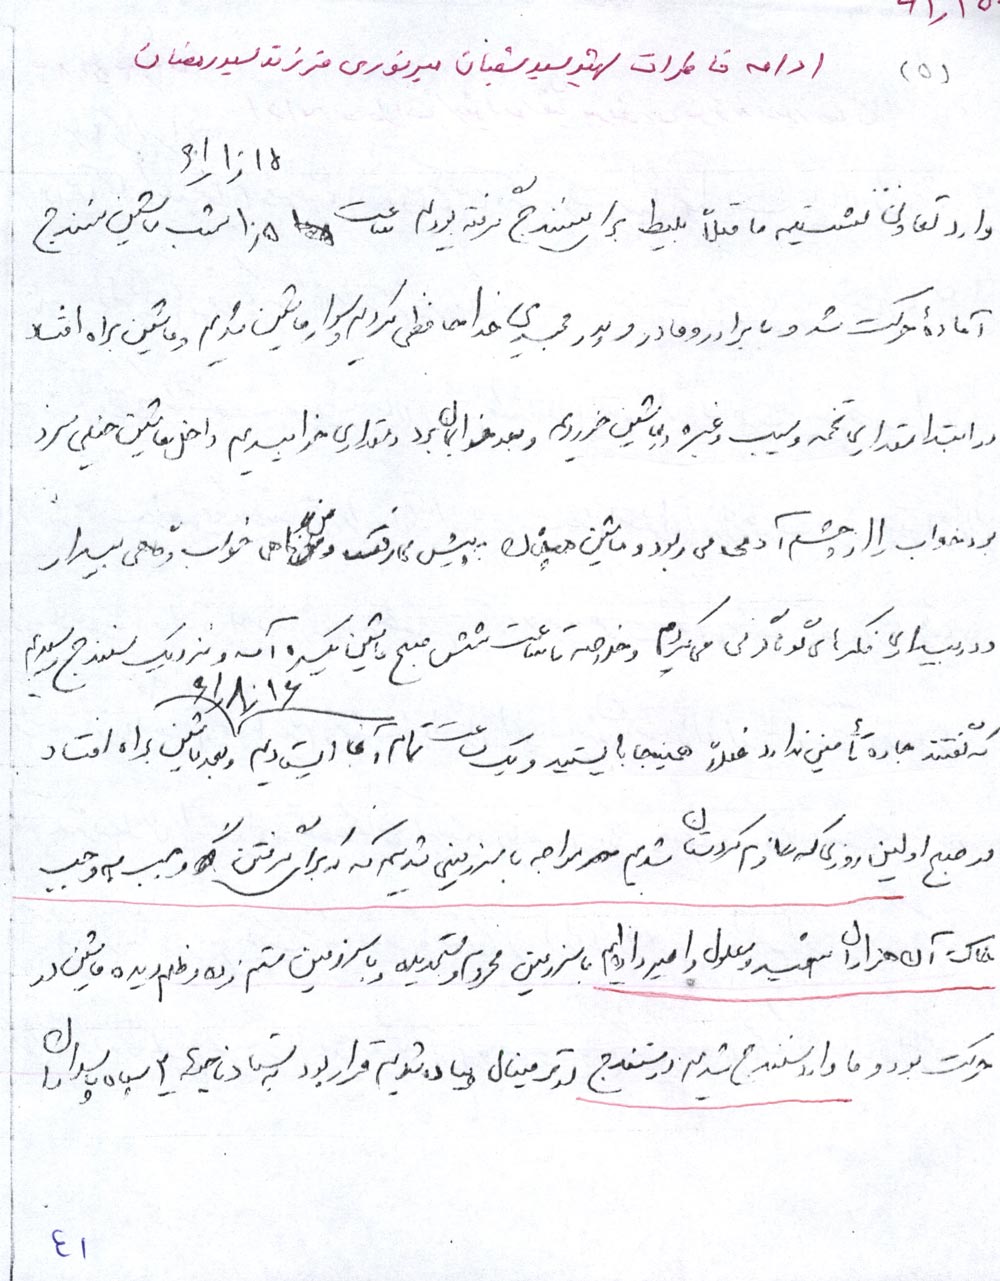 (۵) ادامه خاطرات شهید سید شعبان میرنوری فرزند سید رمضان
۶۱ر۱ر۱۵
وارد تعاونی نشستیم ما قبلاً بلیط برای سنندج گرفته بودیم ساعت ۱۰ر۵ شب ماشین سنندج
آمادهٔ حرکت شد و با برادر و مادر و پدر مجیدی خداحافظی کردیم و سوار ماشین شدیم و ماشین براه افتاد
در ابتدا مقداری تخمه و سیب و غیره در ماشین خوردیم و بعد خوابمان برد و مقداری خوابیدیم داخل ماشین خیلی سرد
بود خواب را از چشم آدم می ربود و ماشین همچنان به پیش می رفت و من گاهی خواب و گاهی بیدار
و در بیداری فکرهای گوناگونی می کردم و خلاصه تا ساعت شش صبح ماشین یکسره آمد و نزدیک سنندج رسیدیم
۶۱ر۸ر۱۶
که گفتند جاده تأمینی ندارد فعلاً همینجا بایستید و یک ساعت تمام آنجا ایستادیم و بعد ماشین براه افتاد
در صبح اولین روزی که عازم کردستان شدیم مواجه با سرزمینی شدیم که برای گرفتن وجب به وجب
خاک آن هزاران شهید و معلول و اسیر دادیم با سرزمین محروم و ستمدیده و با سرزمین ستم زده و ظلم دیده ماشین در
حرکت بود و ما وارد سنندج شدیم در سنندج در ترمینال پیاده شدیم قرار بود به ستاد ناحیه ۳ سپاه پاسداران
۴۱